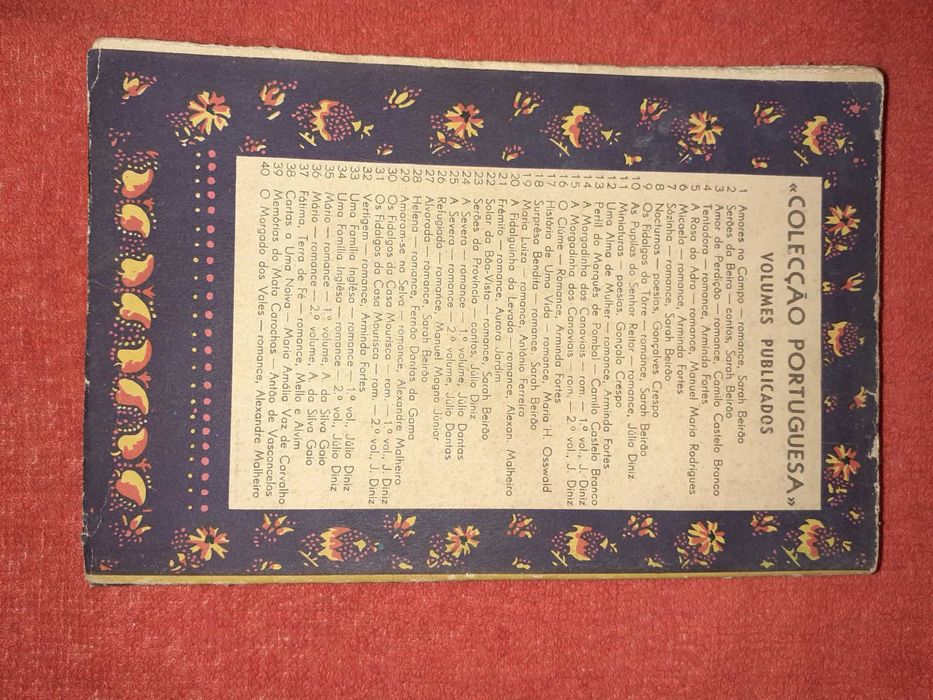 «COLECÇÃO PORTUGUESA»
VOLUMES PUBLICADOS
1 Amores no Campo — romance, Sarah Beirão
2 Serões da Beira — contos, Sarah Beirão
3 Amor de Perdição — romance, Camilo Castelo Branco
4 Tentadora — romance, Arminda Fortes
5 A Rosa do Adro — romance, Manuel Maria Rodrigues
6 Micaela — romance Arminda Fortes
7 Sòzinha — romance, Sarah Beirão
8 Nocturnos — poesias, Gonçalves Crespo
9 Os Fidalgos da Tôrre — romance, Sarah Beirão
10 As Pupilas do Senhor Reitor — romance, Júlio Diniz
11 Miniaturas — poesias, Gonçalo Crespo
12 Uma Alma de Mulher — romance, Arminda Fortes
13 Perfil do Marquês de Pombal — Camilo Castelo Branco
14 A Morgadinha dos Canaviais — rom. — 1.º vol., J. Diniz
15 A Morgadinha dos Canaviais — rom. — 2.º vol., J. Diniz
16 O Ciúme — Romance, Arminda Fortes
17 História de Uma Vida — romance, Maria H. Osswald
18 Surprêsa Bendita — romance, Sarah Beirão
19 Maria Luiza — romance, António Ferreira
20 A Fidalguinha do Levada — romance, Alexan. Malheiro
21 Frémito — romance, Aurora Jardim
22 Solar da Bôa-Vista — romance, Sarah Beirão
23 Serões da Província — contos, Júlio Diniz
24 A Severa — romance — 1.º volume, Júlio Dantas
25 A Severa — romance — 2.º volume, Júlio Dantas
26 Refugiado — romance, Manuel Magno Júnior
27 Alvorada — romance, Sarah Beirão
28 Helena — romance, Fernão Dantas da Gama
29 Amaram-se na Selva — romance, Alexandre Malheiro
30 Os Fidalgos da Casa Mourisca — rom. — 1.º vol., J. Diniz
31 Os Fidalgos da Casa Mourisca — rom. — 2.º vol., J. Diniz
32 Vertigem — romance, Arminda Fortes
33 Uma Família Inglêsa — romance — 1.º vol., Júlio Diniz
34 Uma Família Inglêsa — romance — 2.º vol., Júlio Diniz
35 Mário — romance — 1.º volume, A. da Silva Gaio
36 Mário — romance — 2.º volume, A. da Silva Gaio
37 Fátima, Terra de Fé — romance, Mello e Alvim
38 Cartas a Uma Noiva — Maria Amália Vaz de Carvalho
39 Memórias do Mata Carochas — Antão de Vasconcelos
40 O Morgado dos Vales — romance, Alexandre Malheiro